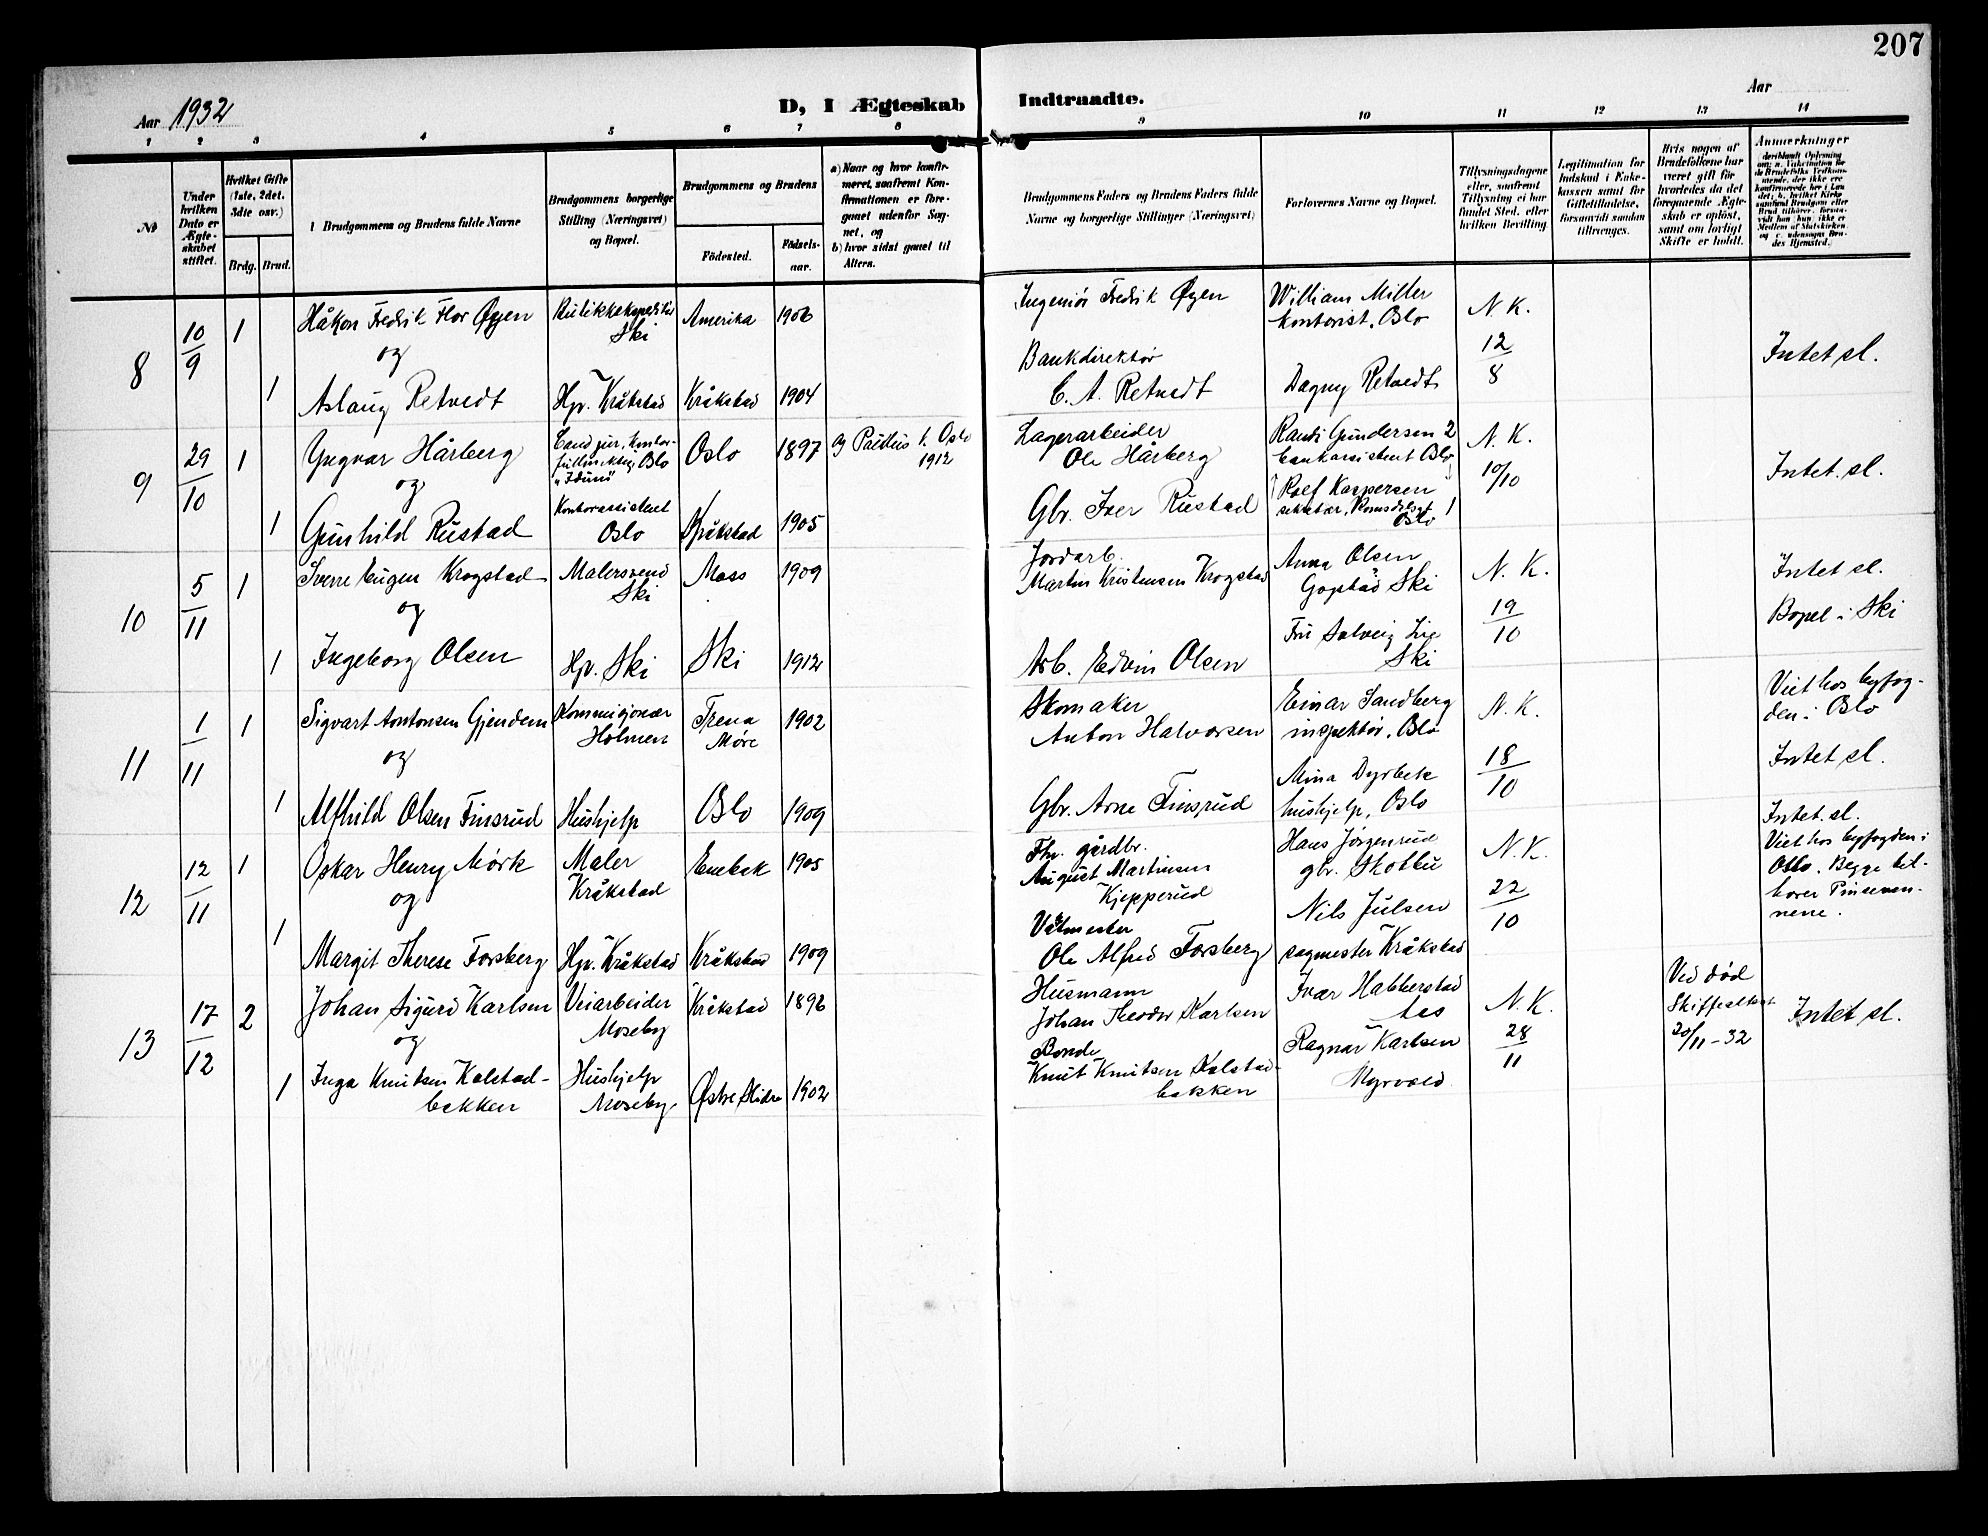 207
Aar 1932
D, I Ægteskab Indtraadte.
Aar
1 2 3 4 5 6 7 8 9 10 11 12 13 14
№
Under hvilken Dato er Ægteskabet stiftet.
Hvilket Gifte (1ste, 2det, 3die osv.)
Brdg. Brud.
Brudgommens og Brudens fulde Navne
Brudgommens borgerlige Stilling (Næringsvei) og Bopæl.
Brudgommens og Brudens
Fødested.
Fødselsaar.
a) Naar og hvor konfirmeret, saafremt Konfirmationen er foregaaet udenfor Sognet, og
b) hvor sidst gaaet til Alters.
Brudgommens Faders og Brudens Faders fulde Navne og borgerlige Stillinger (Næringsvei)
Forlovernes Navne og Bopæl.
Tillysningsdagene eller, saafremt Tillysning ei har fundet Sted, efter hvilken Bevilling.
Legitimation for Indskud i Enkekassen samt for Giftetilladelse, forsaavidt saadan tiltrænges.
Hvis nogen af Brudefolkene har været gift før hvorledes da det foregaaende Ægteskab er opløst, samt om lovligt Skifte er holdt.
Anmerkninger
8
10/9
1
Håkon Fredrik Flor Øyen
Ski
Amerika
1906
Ingeniør Fredrik Øyen
William Miller
kontorist, Oslo
N. K.
12/8
Intet sl.
og
1
Aslaug Retvedt
Hpv. Kråkstad
Kråkstad
1904
Bankdirektør
C. A. Retvedt
Dagny Retvedt
9
29/10
1
Yngvar Hårberg
Cand. jur. kontor-
fullmektig Oslo
"Idun"
Oslo
1897
a) Paulus k. Oslo
1912
Lagerarbeider
Ole Hårberg
Randi Gundersen 2
bankassistent Oslo
N. K.
10/10
Intet sl.
og
1
Gunhild Rustad
Kontorassistent
Oslo
Kråkstad
1905
Gbr. Iver Rustad
Rolf Kaspersen
sekretær, Romsdalsgt
Oslo 1
10
5/11
1
Sverre Eugen Krogstad
Malersvend
Ski
Moss
1909
Jordarb.
Martin Kristensen Krogstad
Anna Olsen
Ski
N. K.
19/10
Intet sl.
Bopel i Ski
og
1
Ingeborg Olsen
Hpv. Ski
Ski
1912
Arb. Edvin Olsen
Fru Solveig Lie
Ski
11
1/11
1
Sigvart Antonsen Gjendem
Kommisjonær
Holmen
Møre
1902
Skomaker
Anton Halvorsen
Einar Sandberg
inspektør, Oslo
N. K.
18/10
Viet hos byfog-
den i Oslo
Intet sl.
og
1
Alfhild Olsen Finsrud
Hushjelp
Oslo
1909
Gbr. Arne Finsrud
Mina Dyrbek
hushjelp, Oslo
12
12/11
1
Oskar Henry Mørk
Maler
Kråkstad
Enebak
1905
Fhv. gårdbr.
August Martinsen
Kjepperud
Hans Jørgenrud
gbr. Skotbu
N. K.
22/10
Intet. sl.
Viet hos byfogden i
Oslo. Begge til-
hører Pinseven-
nene.
og
1
Margit Therese Forsberg
Hpv. Kråkstad
Kråkstad
1909
Ole Alfred Forsberg
Nils Julsen
sagmester Kråkstad
13
17/12
2
Johan Sigurd Karlsen
Veiarbeider
Moseby
Kråkstad
1896
Husmann
Johan Theodor Karlsen
Ivar Habberstad
Aas
N. K.
28/11
Ved død
Skifteattest
20/11-32
Intet sl.
og
1
Inga Knutsen Kolstad-
bakken
Hushjelp
Moseby
Østre Slidre
1902
Bonde
Knut Knutsen Kolstad-
bakken
Ragnar Karlsen
Myrvold